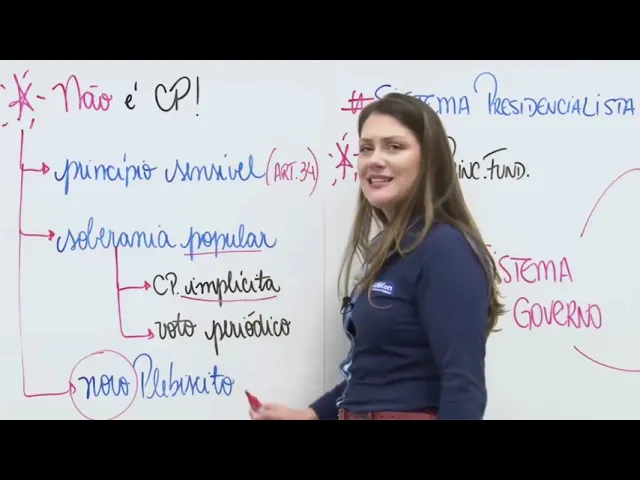 - Não é CP!
princípio sensível (ART. 34)
soberania popular
CP. implícita
voto periódico
novo Plebiscito
# SISTEMA PRESIDENCIALISTA
INC. FUND.
SISTEMA
GOVERNO